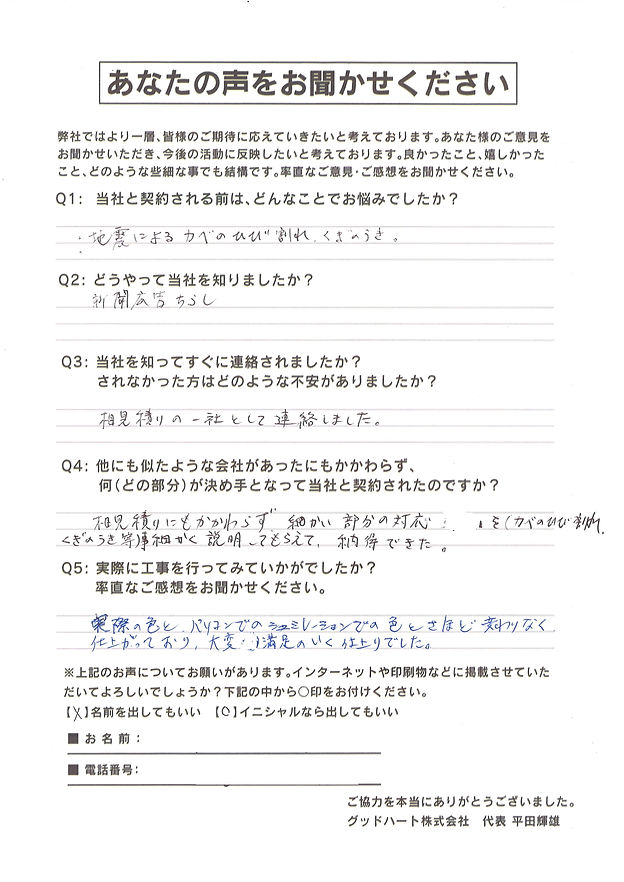 あなたの声をお聞かせください
弊社ではより一層、皆様のご期待に応えていきたいと考えております。あなた様のご意見を
お聞かせいただき、今後の活動に反映したいと考えております。良かったこと、嬉しかった
こと、どのような些細な事でも結構です。率直なご意見・ご感想をお聞かせください。
Q1: 当社と契約される前は、どんなことでお悩みでしたか？
・地震によるカベのひび割れ、くぎのうき。
Q2: どうやって当社を知りましたか？
新聞広告ちらし
Q3: 当社を知ってすぐに連絡されましたか？
されなかった方はどのような不安がありましたか？
相見積りの一社として連絡しました。
Q4: 他にも似たような会社があったにもかかわらず、
何（どの部分）が決め手となって当社と契約されたのですか？
相見積りにもかかわらず、細かい部分の対応 を（カベのひび割れ、
くぎのうき等）事細かく説明してもらえて、納得できた。
Q5: 実際に工事を行ってみていかがでしたか？
率直なご感想をお聞かせください。
実際の色と、パソコンでのシュミレーションでの色とさほど変わりなく
仕上がっており、大変 満足のいく仕上りでした。
※上記のお声についてお願いがあります。インターネットや印刷物などに掲載させていた
だいてよろしいでしょうか？下記の中から○印をお付けください。
【X】名前を出してもいい 【O】イニシャルなら出してもいい
■ お名前：
■ 電話番号：
ご協力を本当にありがとうございました。
グッドハート株式会社 代表 平田輝雄